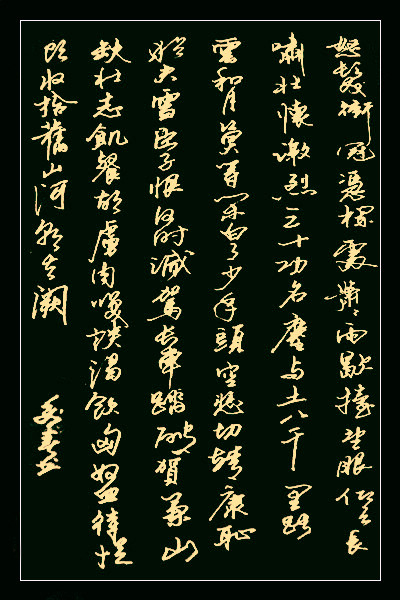 怒髮衝冠憑欄處瀟瀟雨歇擡望眼仰天長
嘯壯懷激烈三十功名塵与土八千里路
雲和月莫等閒白了少年頭空悲切靖康恥
猶未雪臣子恨何時滅駕長車踏破賀蘭山
缺壯志飢餐胡虜肉笑談渴飲匈奴血待從
頭收拾舊山河朝天闕